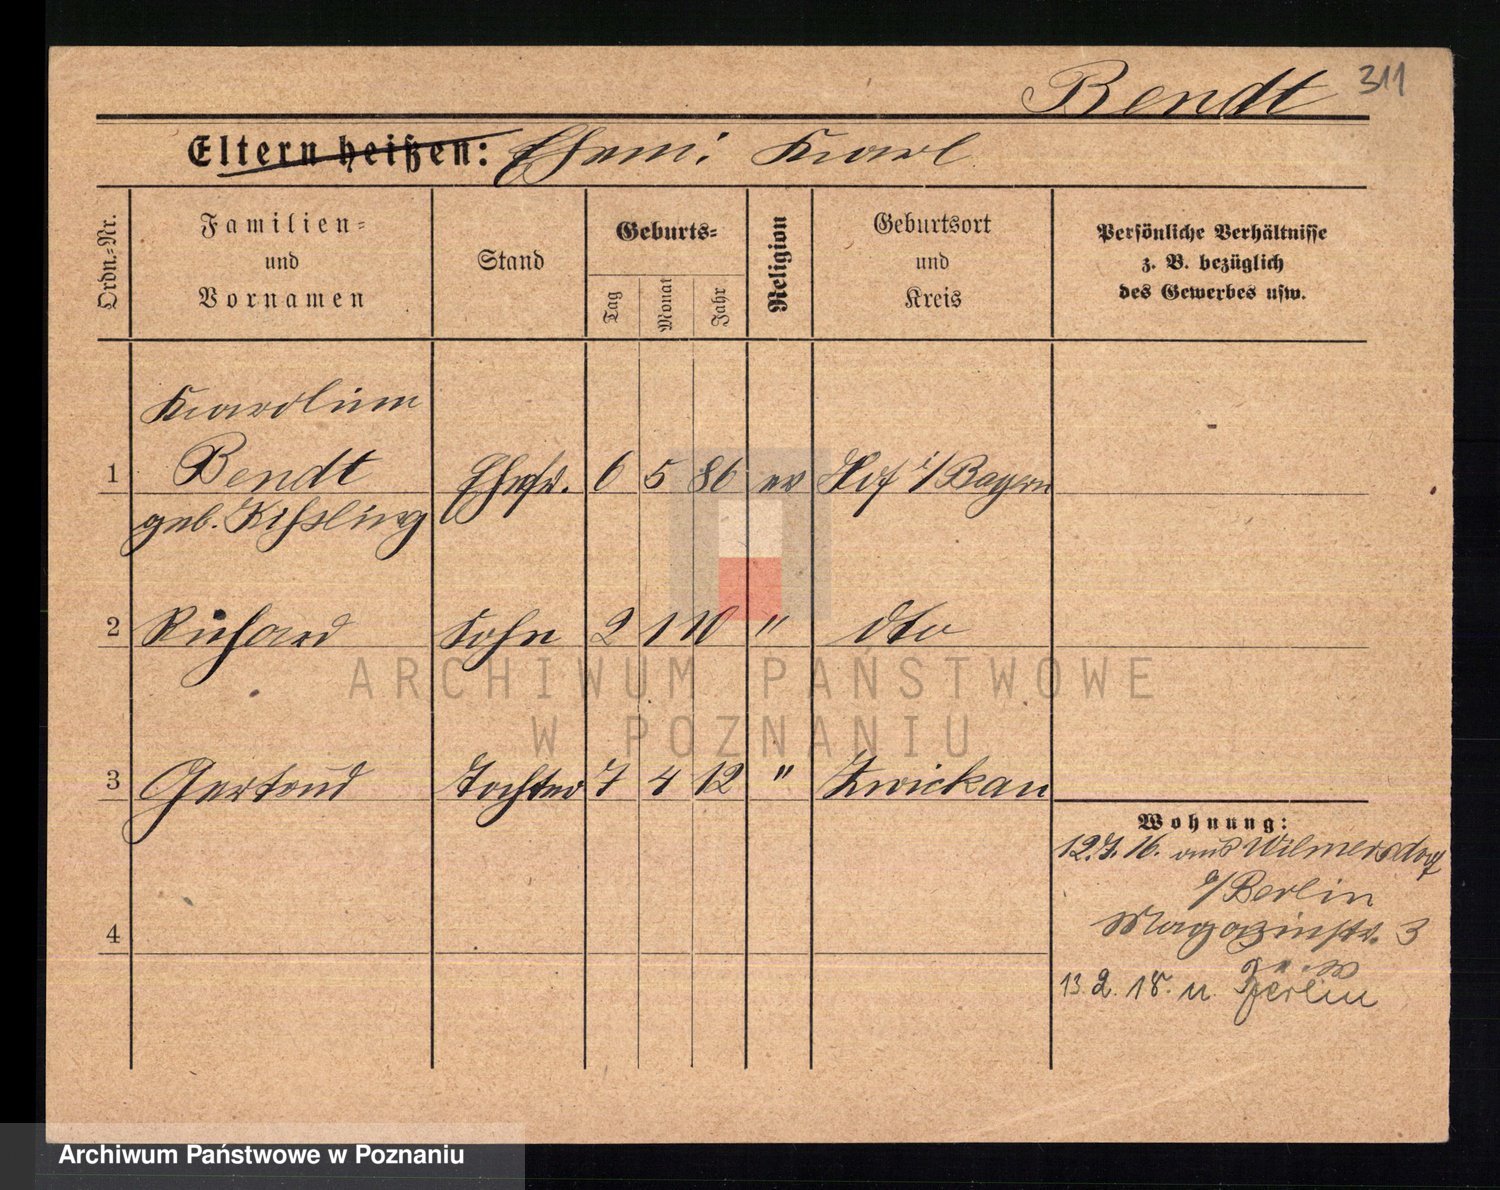 Bendt 311
Eltern heißen: Ehem: Karl
Ordn.-Nr.
Familien-
und
Vornamen
Stand
Geburts-
Tag
Monat
Jahr
Religion
Geburtsort
und
Kreis
Persönliche Verhältnisse
z. B. bezüglich
des Gewerbes usw.
Karoline
1 Bendt Ehefr. 6 5 86 ev Hof i/Bayern
geb. Kißling
2 Richard Sohn 2 1 10 " dto
3 Gertrud Tochter 7 4 12 " Zwickau
4
Wohnung:
12.7.16. aus Wilmersdorf
b/Berlin
Magazinstr. 3
13.2.18. n. Berlin
ARCHIWUM PAŃSTWOWE
W POZNANIU
Archiwum Państwowe w Poznaniu